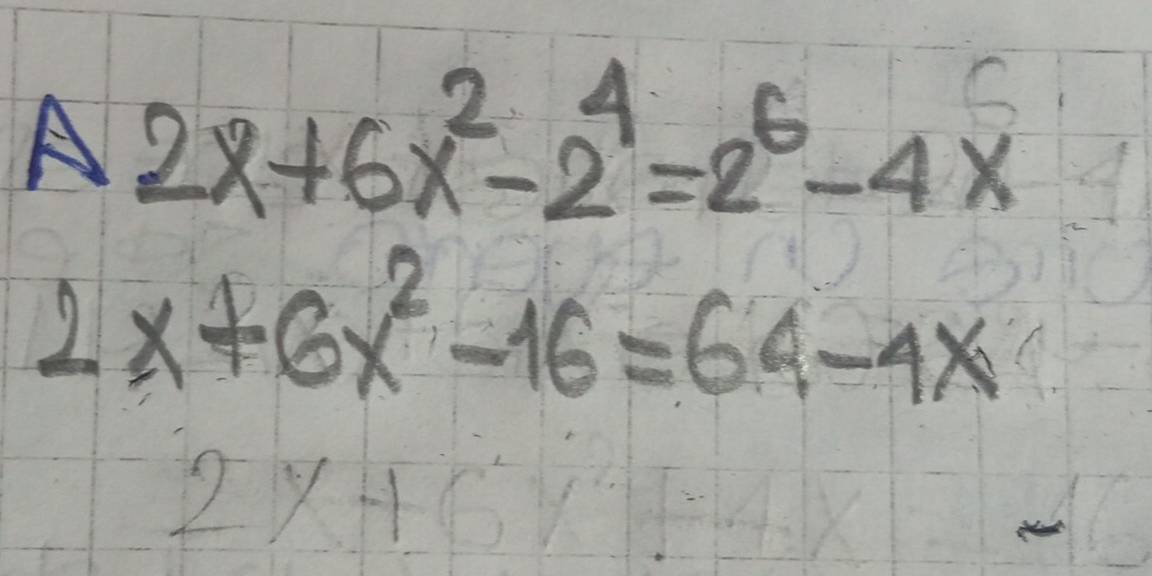 A 2x+6x²-2⁴=2⁶-4x
2x+6x²-16=64-4x
2x+6x²+4x -16